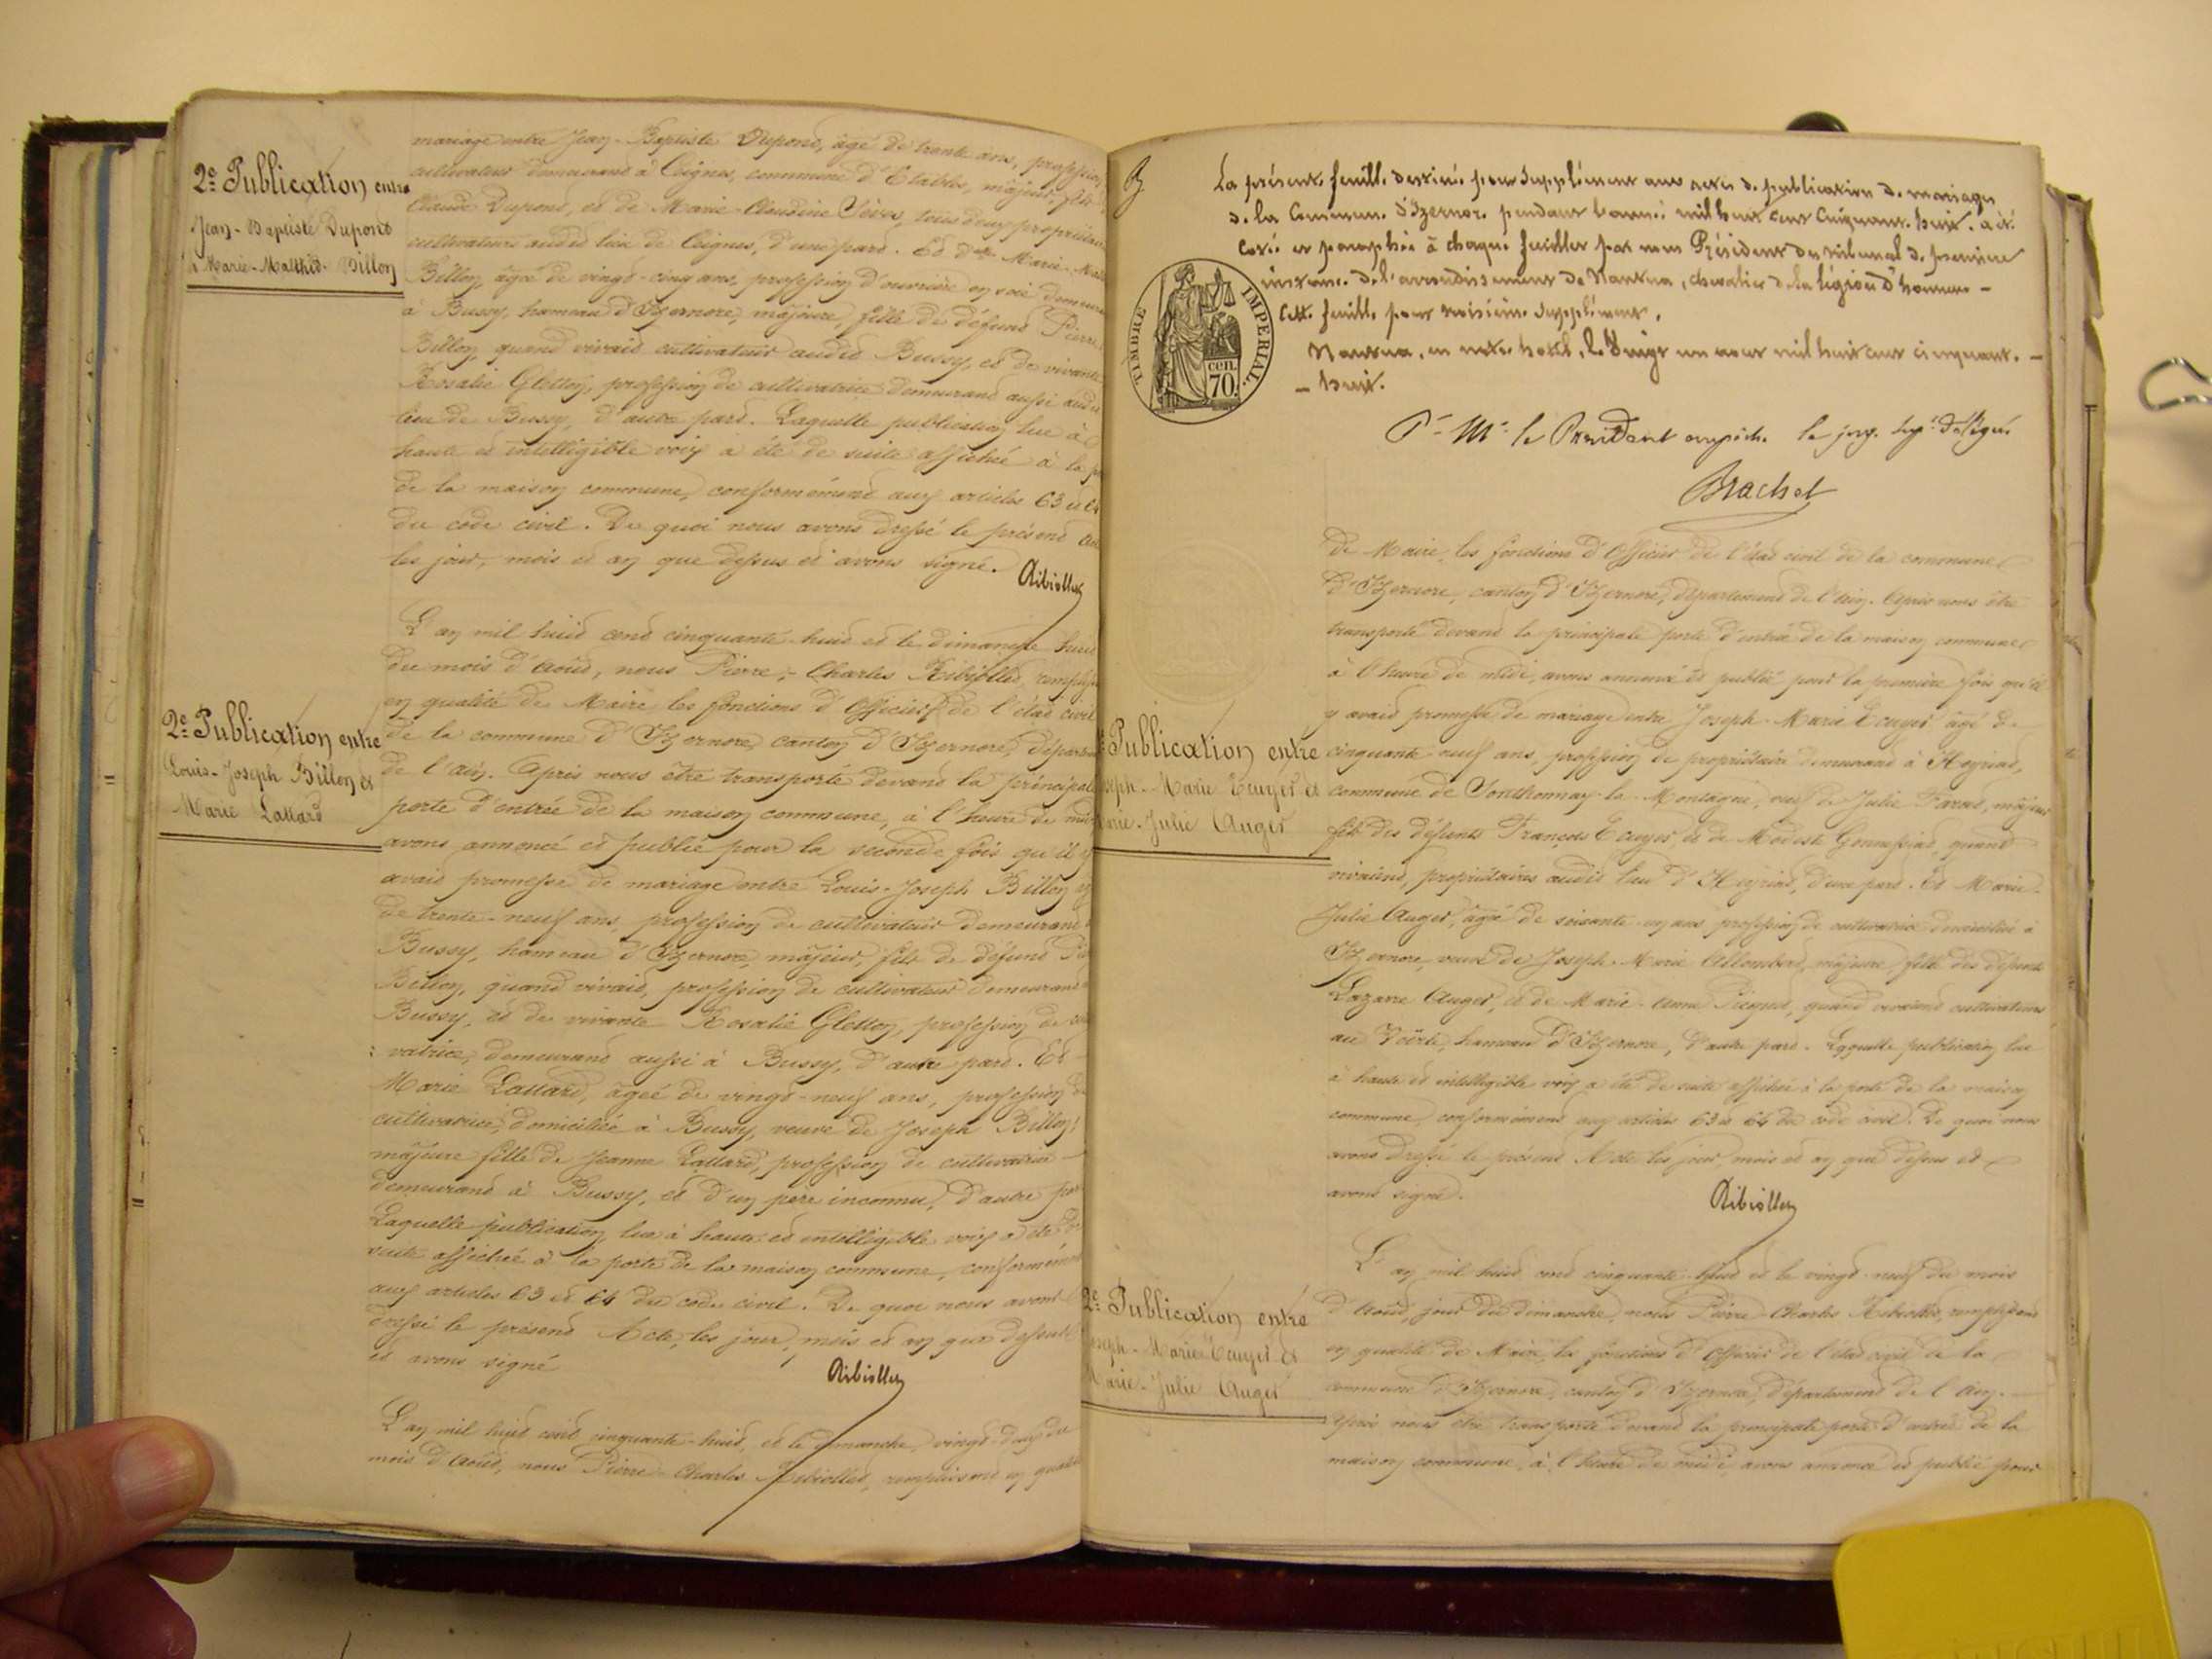 2e Publication entre
Jean-Baptiste Dupond
& Marie-Mathil. Billon
mariage entre Jean-Baptiste Dupond, âgé de trente ans, profession
cultivateur demeurant à Ceignes, commune d'Etables, majeur, fils
Claude Dupond, et de Marie-Claudine Sèves, tous deux propriétaires
cultivateurs audit lieu de Ceignes, d'une part. Et dlle Marie-
Billon, âgée de vingt-cinq ans, profession d'ouvrière en soie demeurant
à Bussy, hameau d'Izernore, majeure, fille de défunt Pierre
Billon, quand vivait cultivateur audit Bussy, et de vivante
Rosalie Gletton, profession de cultivatrice demeurant aussi audit
lieu de Bussy, d'autre part. Laquelle publication lue à
haute et intelligible voix a été de suite affichée à la
de la maison commune, conformément aux articles 63 et 64
du code civil. De quoi nous avons dressé le présent
les jour, mois et an que dessus et avons signé.
Ribiollet
2e Publication entre
Louis-Joseph Billon et
Marie Lallard
L'an mil huit cent cinquante-huit et le dimanche huit
du mois d'Août, nous Pierre-Charles Ribiollet, remplissant
en qualité de Maire les fonctions d'Officier de l'état civil
de la commune d'Izernore, canton d'Izernore, département
de l'Ain. Après nous être transporté devant la principale
porte d'entrée de la maison commune, à l'heure de midi
avons annoncé et publié pour la seconde fois qu'il y
avait promesse de mariage entre Louis-Joseph Billon
de trente-neuf ans, profession de cultivateur demeurant
Bussy, hameau d'Izernore, majeur, fils de défunt
Billon, quand vivait, profession de cultivateur demeurant
Bussy, et de vivante Rosalie Gletton, profession de
:vatrice, demeurant aussi à Bussy, d'autre part. Et
Marie Lallard, âgée de vingt-neuf ans, profession de
cultivatrice, domiciliée à Bussy, veuve de Joseph Billon,
majeure fille de Jeanne Lallard, profession de cultivatrice
demeurant à Bussy, et d'un père inconnu, d'autre part
Laquelle publication lue à haute et intelligible voix a été de
suite affichée à la porte de la maison commune, conformément
aux articles 63 et 64 du code civil. De quoi nous avons
dressé le présent Acte, les jour, mois et an que dessus
et avons signé
Ribiollet
L'an mil huit cent cinquante-huit, et le dimanche, vingt-deux du
mois d'Août, nous Pierre-Charles Ribiollet, remplissant en qualité
La présente feuille destinée pour supplément aux actes de publication de mariages
de la Commune d'Izernore pendant l'année mil huit cent cinquante-huit, a été
cotée et paraphée à chaque feuillet par nous Président du tribunal de première
instance de l'arrondissement de Nantua, chevalier de la légion d'honneur -
Cette feuille pour troisième supplément.
Nantua, en notre hôtel, le vingt un aout mil huit cent cinquante. -
- huit.
TIMBRE IMPERIAL.
70 cen.
Pr Mr le Président empêché le juge sup. délégué
Brachet
de Maire, les fonctions d'Officier de l'état civil de la commune
d'Izernore, canton d'Izernore, département de l'Ain. Après nous être
transporté devant la principale porte d'entrée de la maison commune
à l'heure de midi, avons annoncé et publié pour la première fois qu'il
y avait promesse de mariage entre Joseph-Marie Ecuyer âgé de
Publication entre
Joseph-Marie Ecuyer et
Marie-Julie Auger
cinquante-neuf ans, profession de propriétaire demeurant à Heyriat,
commune de Sonthonnax-la-Montagne, veuf de Julie Farat, majeur
fils des défunts François Ecuyer et de Modeste, quand
vivaient, propriétaires audit lieu d'Heyriat, d'une part. Et Marie-
Julie Auger, âgée de soixante-un ans profession de cultivatrice domiciliée à
Izernore, veuve de Joseph-Marie Allombert, majeure, fille des défunts
Lazare Auger, et de Marie-Anne Picquet, quand vivaient cultivateurs
au Voërle, hameau d'Izernore, d'autre part. Laquelle publication lue
à haute et intelligible voix a été de suite affichée à la porte de la maison
commune, conformément aux articles 63 et 64 du code civil. De quoi nous
avons dressé le présent Acte les jour, mois et an que dessus et
avons signé.
Ribiollet
2e Publication entre
Joseph-Marie Ecuyer et
Marie-Julie Auger
L'an mil huit cent cinquante-huit et le vingt-neuf du mois
d'Août, jour du dimanche, nous Pierre-Charles Ribiollet, remplissant
en qualité de Maire, les fonctions d'Officier de l'état civil de la
commune d'Izernore, canton d'Izernore, département de l'Ain.
Après nous être transporté devant la principale porte d'entrée de la
maison commune, à l'heure de midi, avons annoncé et publié pour